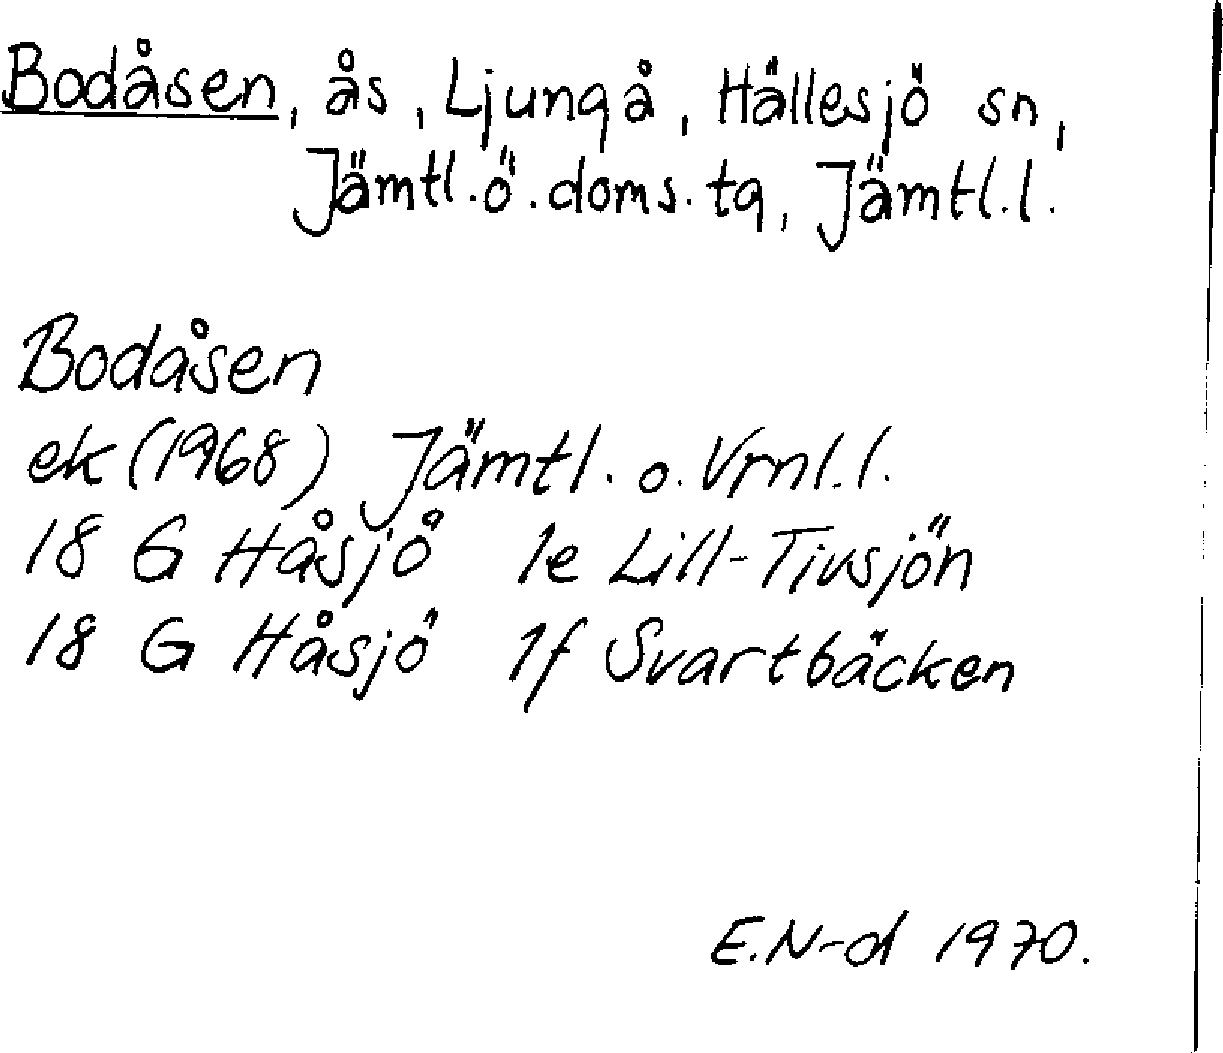 Bodåsen, ås, Ljungå, Hällesjö sn,
Jämtl.ö.doms.tg, Jämtl.l.
Bodåsen
ek (1968) Jämtl. o. Vrnl.l.
18 G Håsjö 1e Lill-Tivsjön
18 G Håsjö 1f Svartbäcken
E.N-d 1970.